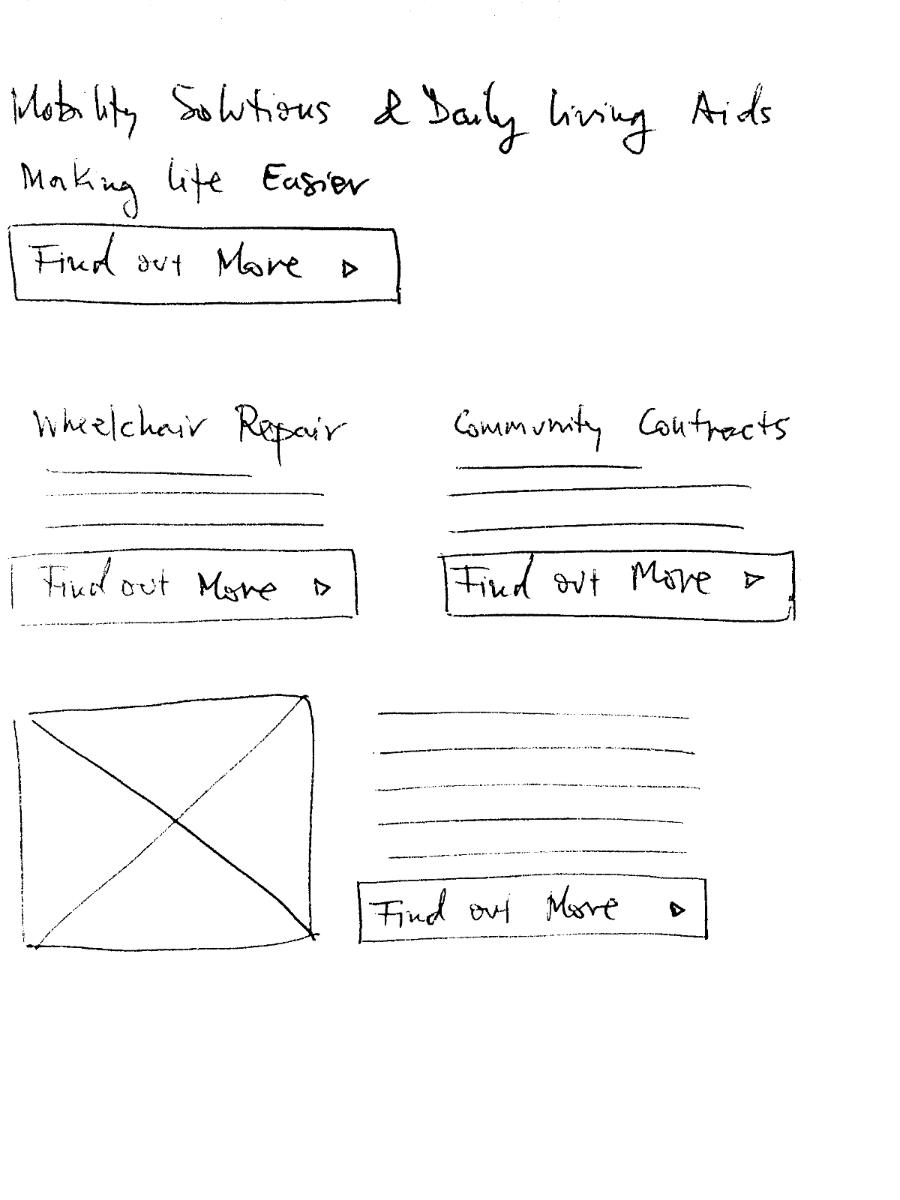 Mobility Solutions & Daily Living Aids
Making life Easier
Find out More
Wheelchair Repair
Find out More
Community Contracts
Find out More
Find out More